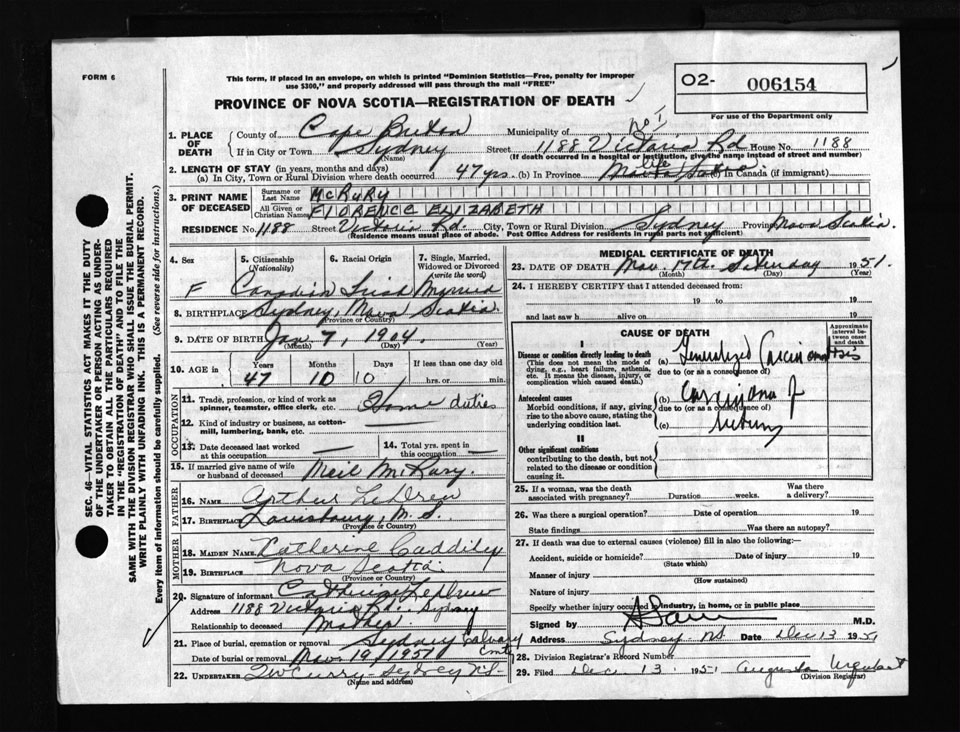 FORM 6
This form, if placed in an envelope, on which is printed "Dominion Statistics—Free, penalty for improper
use $300," and properly addressed will pass through the mail "FREE"
O2- 006154
For use of the Department only
PROVINCE OF NOVA SCOTIA—REGISTRATION OF DEATH
1. PLACE OF DEATH
County of Cape Breton Municipality of
If in City or Town Sydney (Name) Street 1188 Victoria Rd House No. 1188
(If death occurred in a hospital or institution, give the name instead of street and number)
2. LENGTH OF STAY (in years, months and days)
(a) In City, Town or Rural Division where death occurred 47 yrs. (b) In Province life (c) In Canada (if immigrant)
3. PRINT NAME OF DECEASED
Surname or Last Name McRURY
All Given or Christian Names FLORENCE ELIZABETH
RESIDENCE No. 1188 Street Victoria Rd. City, Town or Rural Division Sydney Province Nova Scotia.
(Residence means usual place of abode. Post Office Address for residents in rural parts not sufficient)
4. Sex
F
5. Citizenship (Nationality)
Canadian
6. Racial Origin
Irish
7. Single, Married, Widowed or Divorced (write the word)
Married
8. BIRTHPLACE Sydney, Nova Scotia
(Province or Country)
9. DATE OF BIRTH Jan. 7, 1904.
(Month) (Day) (Year)
10. AGE in Years Months Days If less than one day old
47 10 10 hrs. or min.
OCCUPATION
11. Trade, profession, or kind of work as
spinner, teamster, office clerk, etc. Home duties
12. Kind of industry or business, as cotton-
mill, lumbering, bank, etc. —
13. Date deceased last worked
at this occupation —
14. Total yrs. spent in
this occupation —
15. If married give name of wife
or husband of deceased Neil McRury
FATHER
16. NAME Arthur LeDrew
17. BIRTHPLACE Louisbourg, N.S.
(Province or Country)
MOTHER
18. MAIDEN NAME Katherine Caddihey
19. BIRTHPLACE Nova Scotia
(Province or Country)
20. Signature of informant
Address 1188 Victoria Rd. Sydney
Relationship to deceased Mother
21. Place of burial, cremation or removal Sydney Calvary Cmty
Date of burial or removal Nov. 19, 1951
22. UNDERTAKER Curry - Sydney N.S.
(Name and address)
MEDICAL CERTIFICATE OF DEATH
23. DATE OF DEATH Nov. 17th. Saturday 1951.
(Month) (Day) (Year)
24. I HEREBY CERTIFY that I attended deceased from:
19 to 19
and last saw h alive on 19
CAUSE OF DEATH
Approximate interval between onset and death
I
Disease or condition directly leading to death
(This does not mean the mode of
dying, e.g., heart failure, asthenia,
etc. It means the disease, injury, or
complication which caused death.)
(a) Generalized Carcinomatosis
due to (or as a consequence of)
Antecedent causes
Morbid conditions, if any, giving
rise to the above cause, stating the
underlying condition last.
(b) Carcinoma of
due to (or as a consequence of)
(c)
II
Other significant conditions
contributing to the death, but not
related to the disease or condition
causing it.
25. If a woman, was the death
associated with pregnancy? Duration weeks. Was there a delivery?
26. Was there a surgical operation? Date of operation 19
State findings Was there an autopsy?
27. If death was due to external causes (violence) fill in also the following:—
Accident, suicide or homicide? Date of injury 19
(State which)
Manner of injury
(How sustained)
Nature of injury
Specify whether injury occurred in industry, in home, or in public place
Signed by M.D.
Address Sydney N.S. Date Dec 13 1951
28. Division Registrar's Record Number
29. Filed Dec. 13. 1951 Augusta Urquhart
(Division Registrar)
SEC. 46—VITAL STATISTICS ACT MAKES IT THE DUTY
OF THE UNDERTAKER OR PERSON ACTING AS UNDER-
TAKER TO OBTAIN ALL THE PARTICULARS REQUIRED
IN THE "REGISTRATION OF DEATH" AND TO FILE THE
SAME WITH THE DIVISION REGISTRAR WHO SHALL ISSUE THE BURIAL PERMIT.
WRITE PLAINLY WITH UNFADING INK. THIS IS A PERMANENT RECORD.
Every item of information should be carefully supplied. (See reverse side for instructions.)